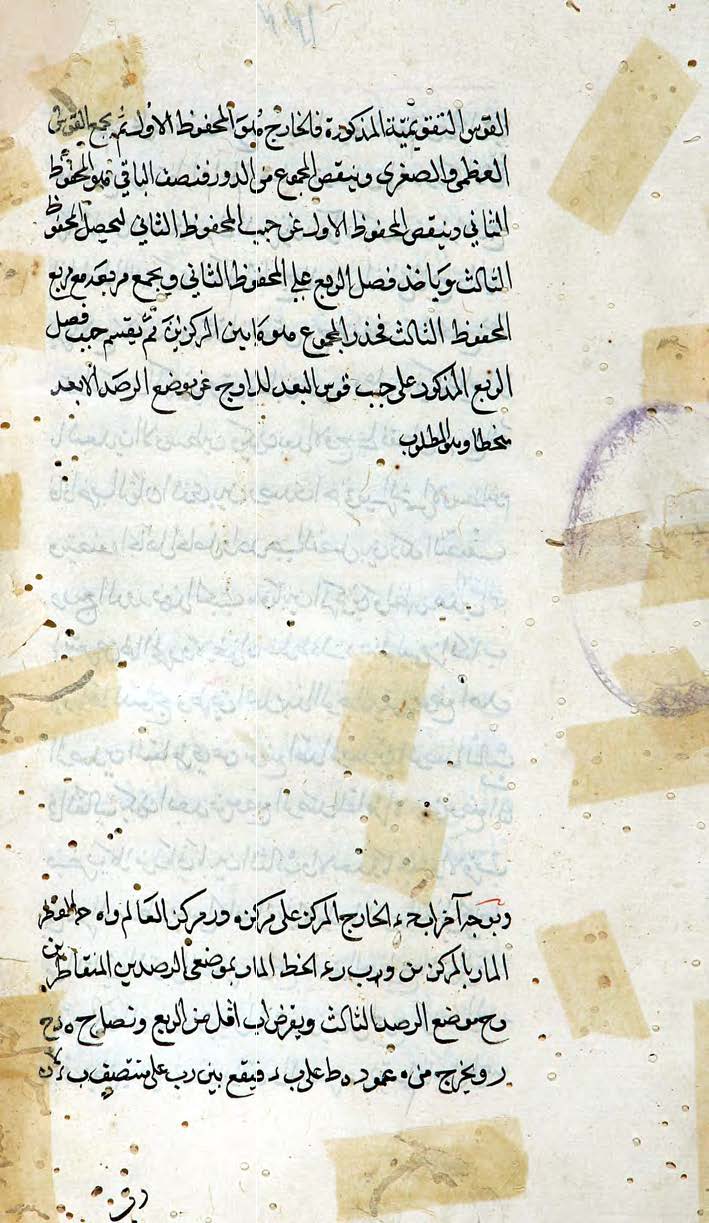 القوس التقويمية المذكورة فالخارج هو المحفوظ الاول ثم يجمع القوس
العظمى والصغرى وينقص المجموع من الدور فنصف الباقي هو المحفوظ
الثاني وينقص المحفوظ الاول عن جيب المحفوظ الثاني ليحصل المحفوظ
الثالث وياخذ فضل الربع على المحفوظ الثاني ويجمع مربعه مع مربع
المحفوظ الثالث فجذر المجموع هو ما بين المركزين ثم يقسم جيب فضل
الربع المذكور على جيب قوس البعد للاوج عن موضع الرصد الابعد
منحطا وهو المطلوب
وبوجه آخر اب ح ء الخارج المركز على مركز ه و ر مركز العالم و اه ح القطر
المار بالمركزين و ب ر ء الخط المار بموضعي الرصدين المتقاطرين
و ح موضع الرصد الثالث ويفرض اب اقل من الربع ونصل ح ه ح
ر ويخرج من ه عمود ه ط على ب ء فيقع بين ر ب على منتصف ب ء